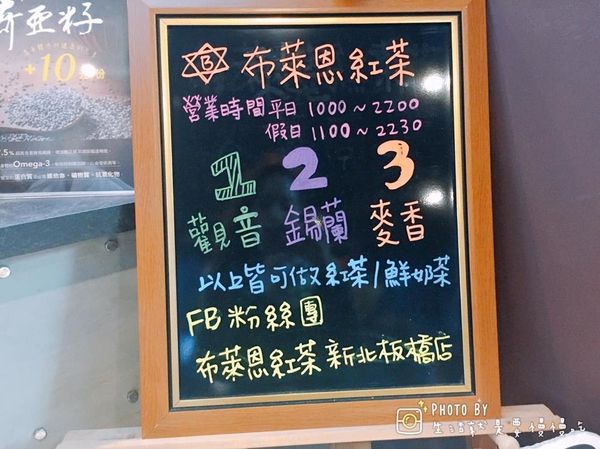 亞籽
+10
Omega-3
B 布萊恩紅茶
營業時間平日 1000~2200
假日 1100~2230
1 2 3
觀音 錫蘭 麥香
以上皆可做紅茶/鮮奶茶
FB 粉絲團
布萊恩紅茶 新北板橋店
PHOTO BY
生活就是要慢慢吃